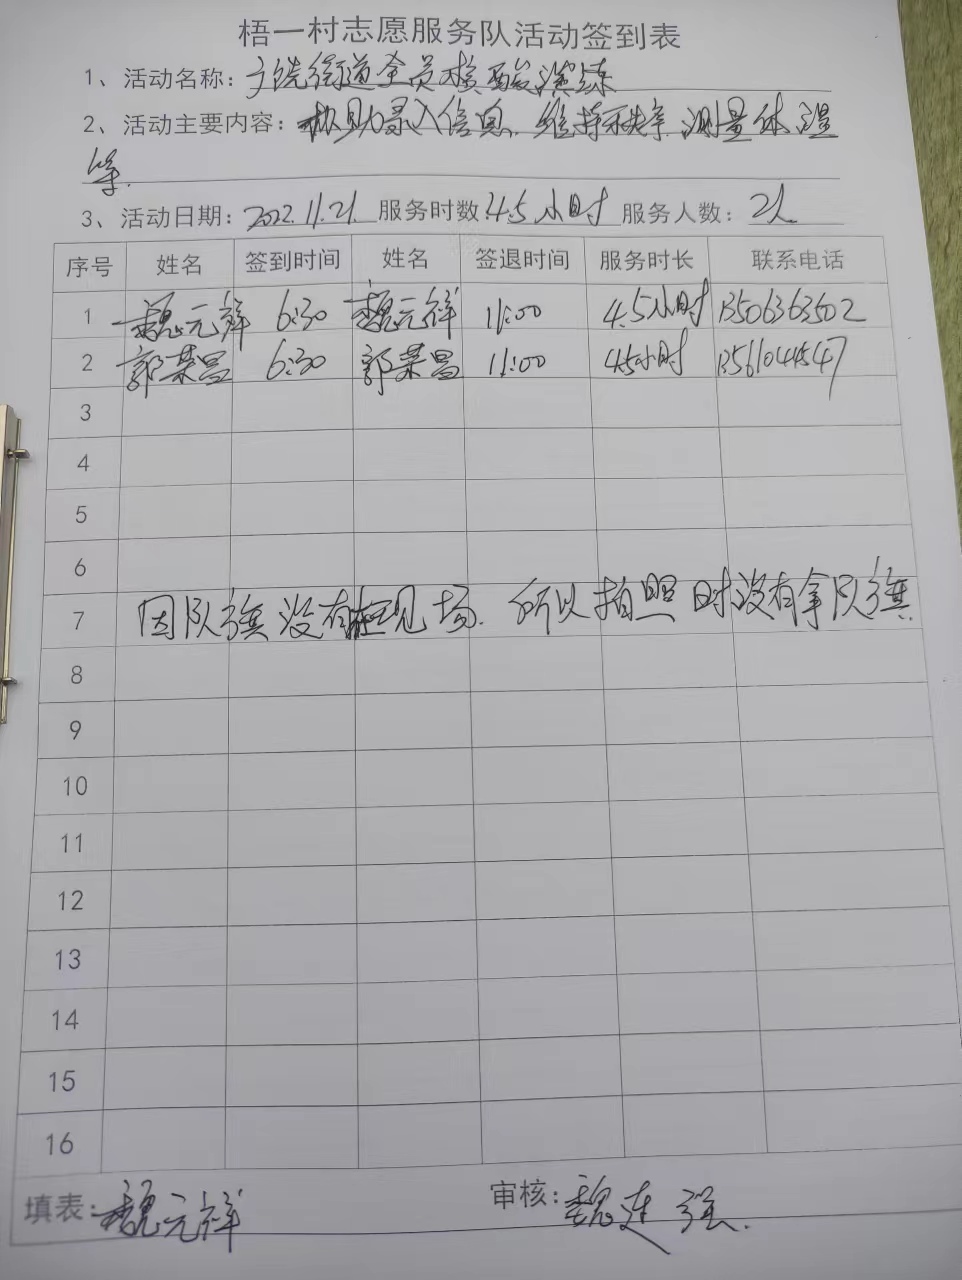 梧一村志愿服务队活动签到表
1、活动名称：广饶街道全员核酸演练
2、活动主要内容：协助录入信息、维持秩序、测量体温
等.
3、活动日期：2022.11.21. 服务时数 4.5小时 服务人数：2人
序号 姓名 签到时间 姓名 签退时间 服务时长 联系电话
1 魏元祥 6:30 魏元祥 11:00 4.5小时 13506363502
2 郭荣昌 6:30 郭荣昌 11:00 4.5小时
3
4
5
6
7 因队旗没有在现场. 所以拍照时没有拿队旗.
8
9
10
11
12
13
14
15
16
填表：魏元祥 审核：魏连强.